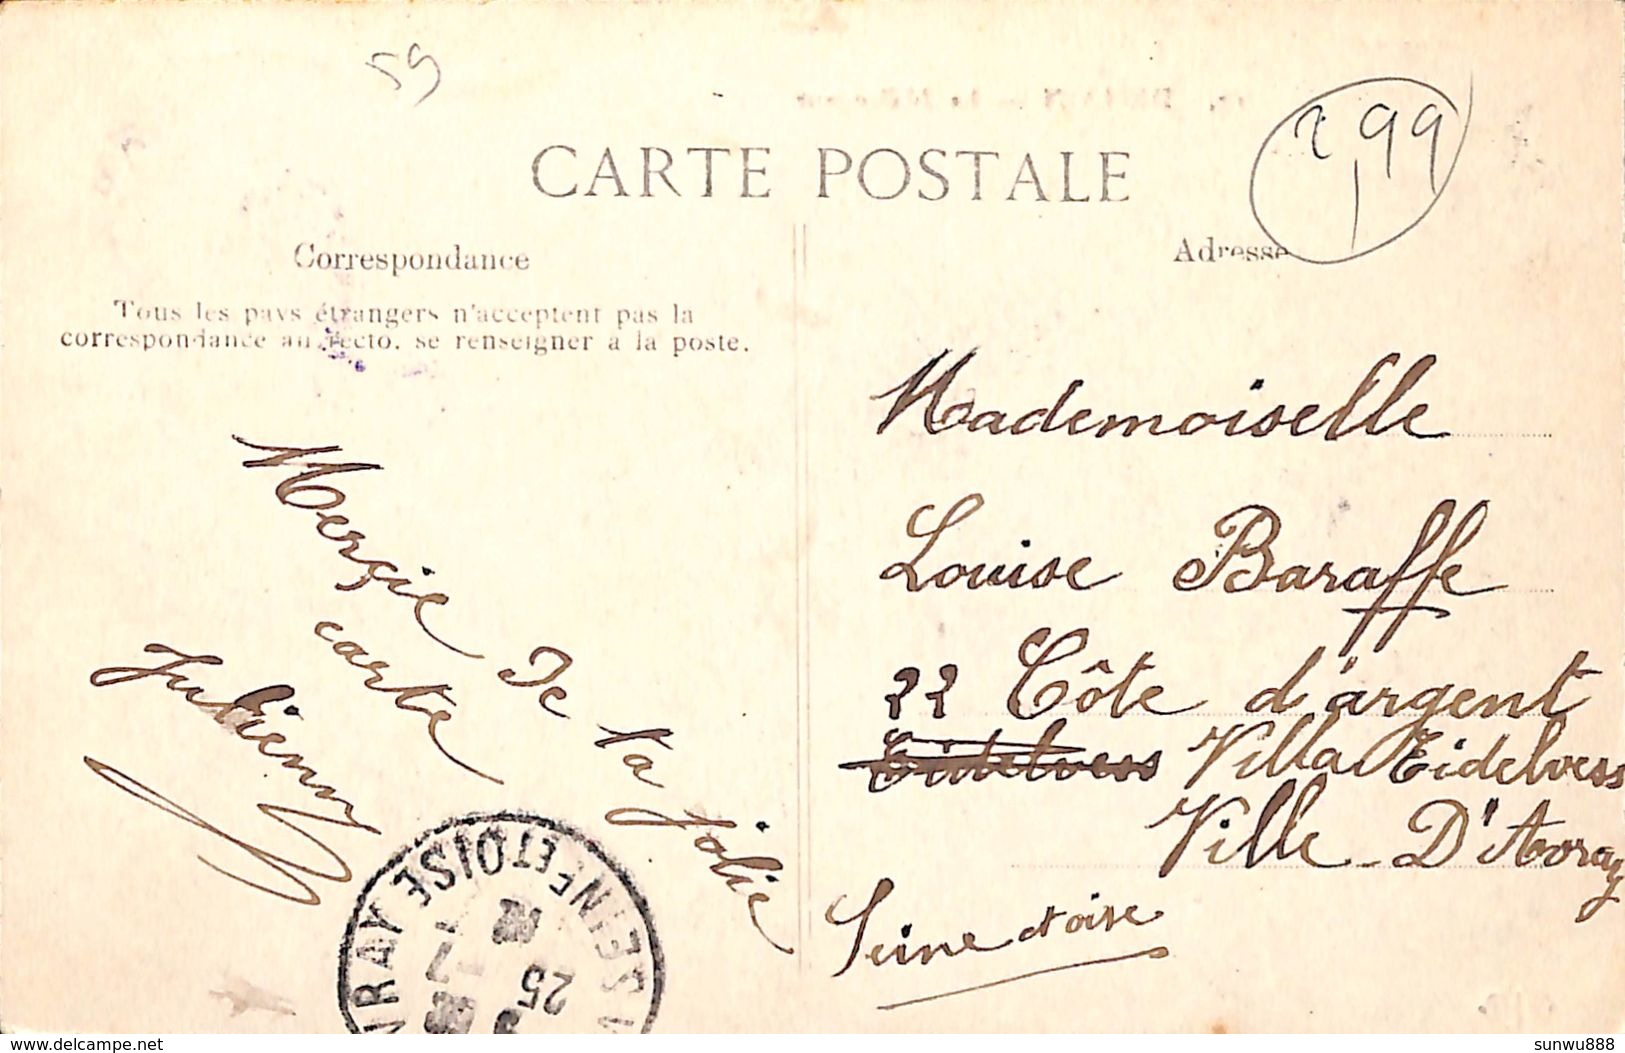 59
2,99
CARTE POSTALE
Correspondance
Adresse
Tous les pays étrangers n'acceptent pas la
correspondance au recto. se renseigner à la poste.
Merçie de la jolie
carte
Julienny
Mademoiselle
Louise Baraffe
22 Côte d'argent
Eidelvess Villa Eidelvess
Ville-D'Avray
Seine et oise
VRAY SEINE-ET-OISE
12
25
delcampe.net
sunwu888